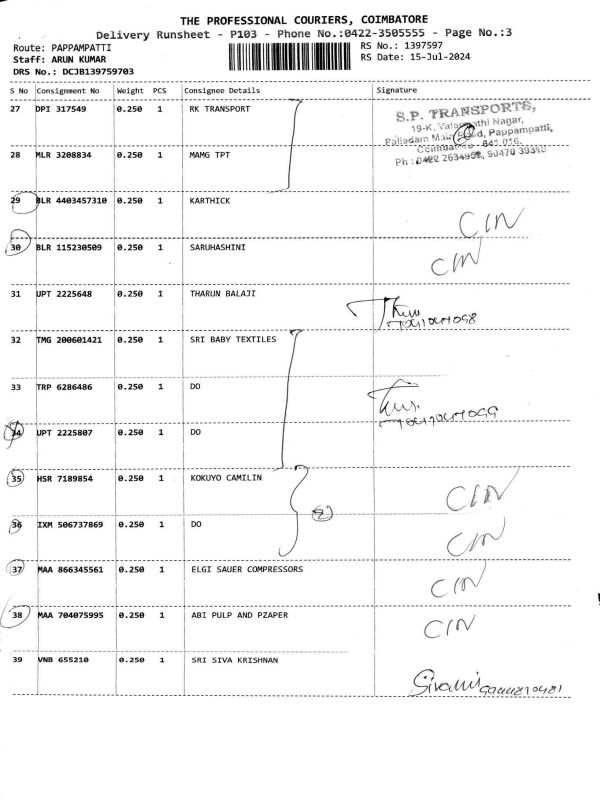 THE PROFESSIONAL COURIERS, COIMBATORE
Delivery Runsheet - P103 - Phone No.:0422-3505555 - Page No.:3
Route: PAPPAMPATTI
Staff: ARUN KUMAR
DRS No.: DCJB139759703
RS No.: 1397597
RS Date: 15-Jul-2024
S No Consignment No Weight PCS Consignee Details Signature
27 DPI 317549 0.250 1 RK TRANSPORT
S.P. TRANSPORTS,
19-K, Valarmathi Nagar,
Palladam Main Road, Pappampatti,
Coimbatore - 641 016.
Ph : 0422
28 MLR 3208834 0.250 1 MAMG TPT
29 BLR 4403457310 0.250 1 KARTHICK CIN
30 BLR 115230509 0.250 1 SARUHASHINI CIN
31 UPT 2225648 0.250 1 THARUN BALAJI
32 TMG 200601421 0.250 1 SRI BABY TEXTILES
33 TRP 6286486 0.250 1 DO
34 UPT 2225807 0.250 1 DO
35 HSR 7189854 0.250 1 KOKUYO CAMILIN CIN
2
36 IXM 506737869 0.250 1 DO CIN
37 MAA 866345561 0.250 1 ELGI SAUER COMPRESSORS CIN
38 MAA 704075995 0.250 1 ABI PULP AND PZAPER CIN
39 VNB 655210 0.250 1 SRI SIVA KRISHNAN